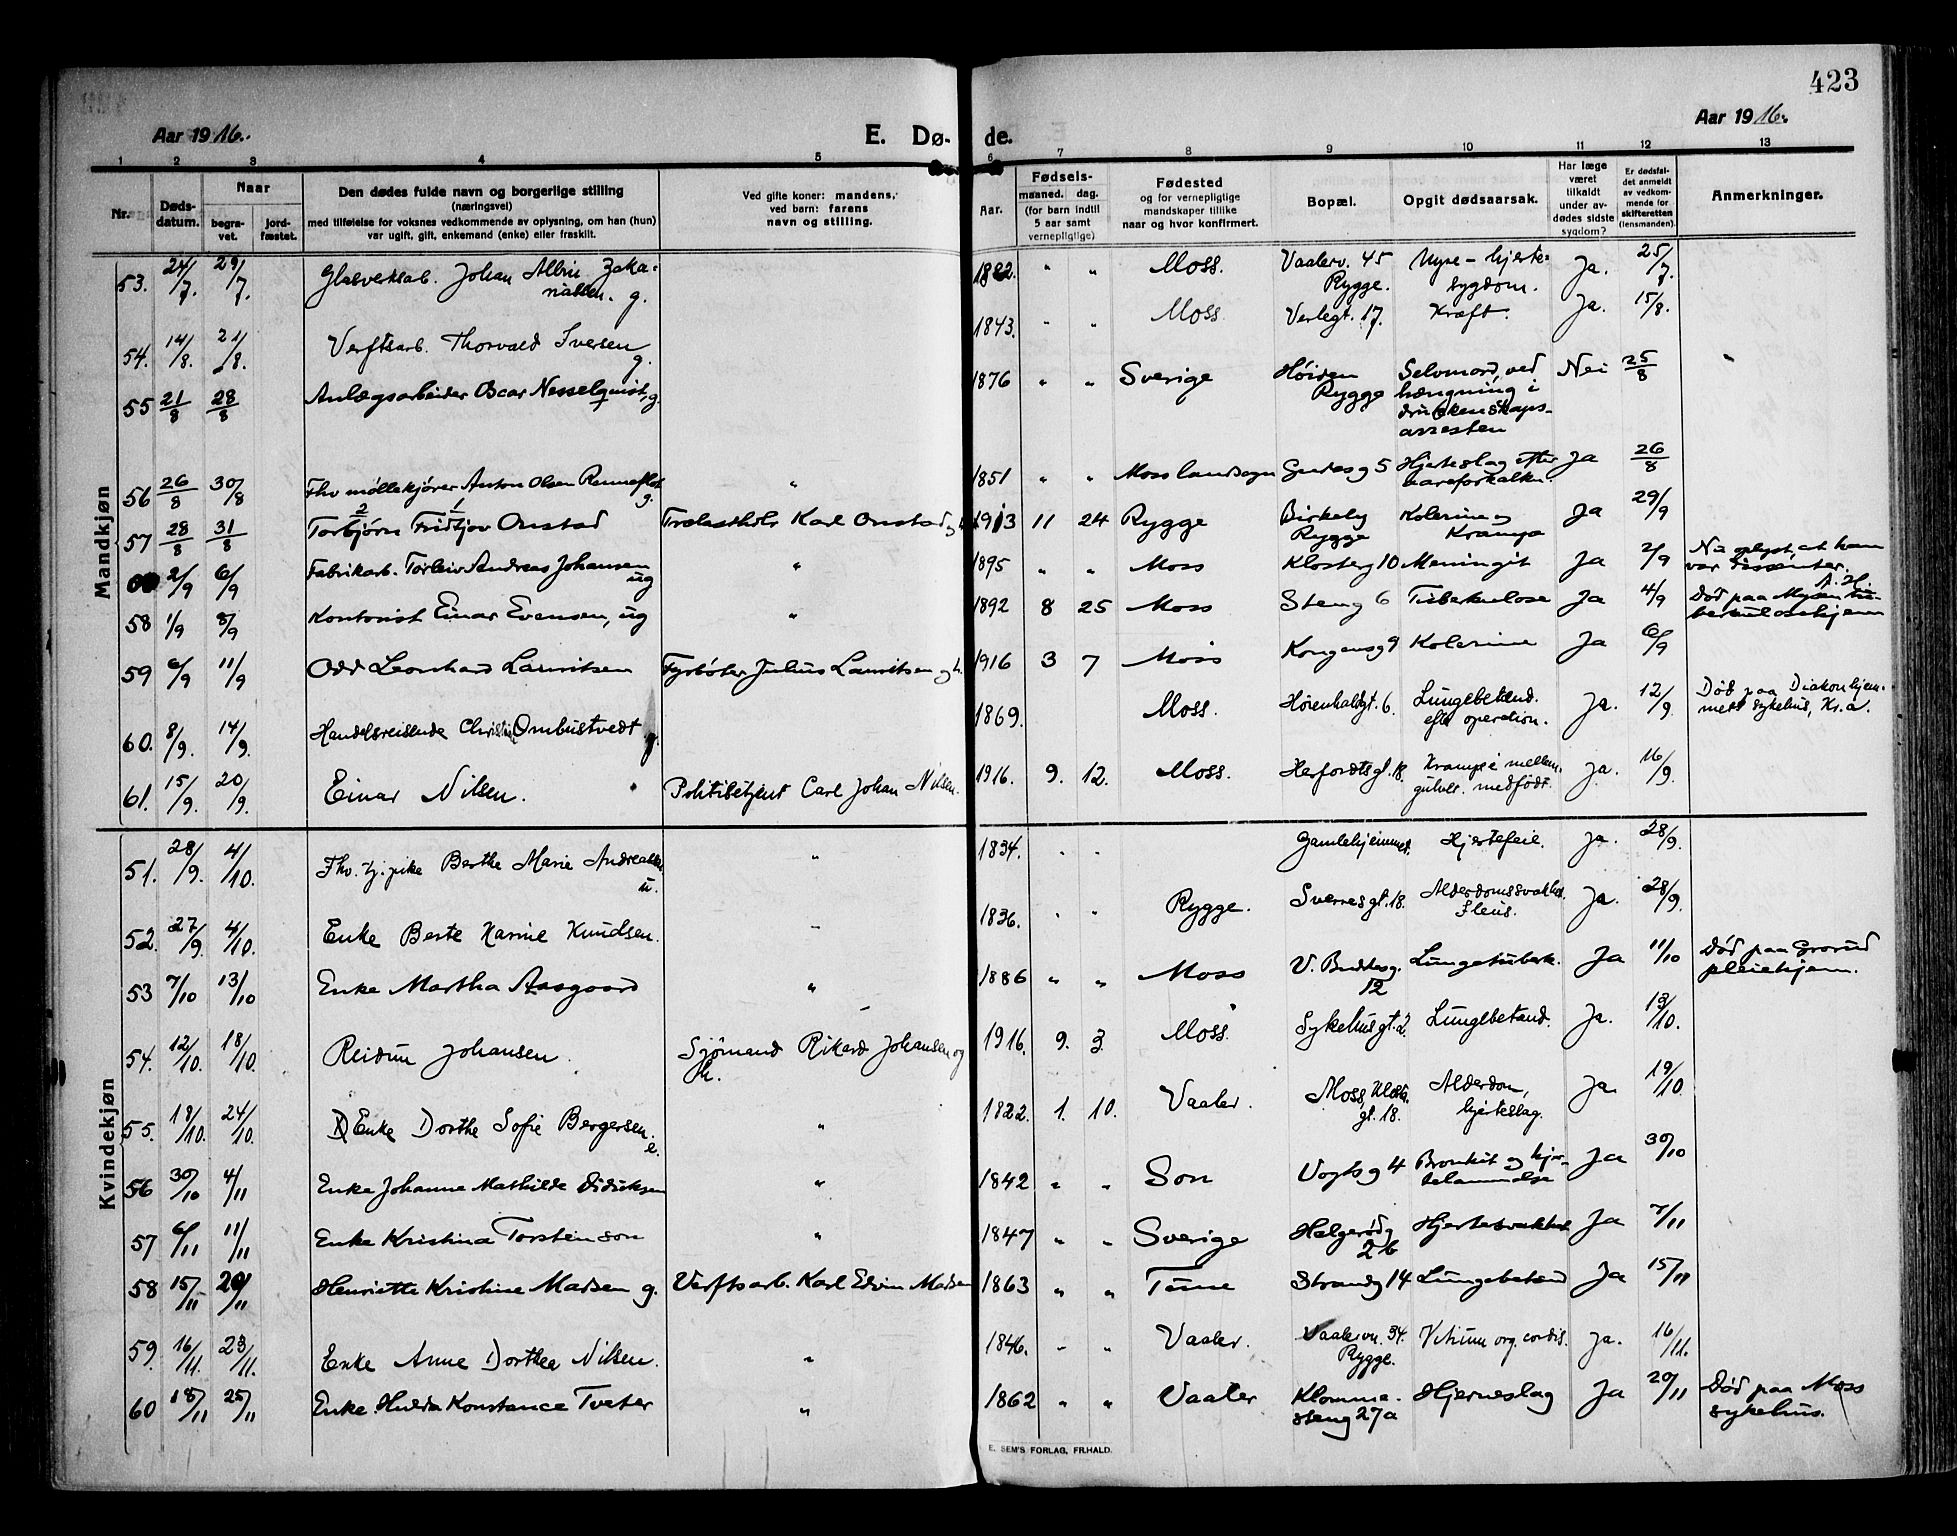 423
Aar 1916.
E. Dø- de.
Aar 1916.
1 2 3 4 5 6 7 8 9 10 11 12 13
Nr. Døds-datum. Naar begra-vet. jord-fæstet.
Den dødes fulde navn og borgerlige stilling
(næringsvei)
med tilføielse for voksnes vedkommende av oplysning, om han (hun)
var ugift, gift, enkemand (enke) eller fraskilt.
Ved gifte koner: mandens,
ved børn: farens
navn og stilling.
Aar.
Fødsels-
maaned. dag.
(for børn indtil
5 aar samt
vernepligtige)
Fødested
og for vernepligtige
mandskaper tillike
naar og hvor konfirmert.
Bopæl.
Opgit dødsaarsak.
Har læge
været
tilkaldt
under av-
dødes sidste
sygdom?
Er dødsfal-
det anmeldt
av vedkom-
mende for
skifteretten
(lensmanden).
Anmerkninger.
Mandkjøn
53. 24/7. 29/7. Glasverksarb. Johan Albin Zaka-riassen. g. 1882. " " Moss. Vaalerv. 45 Rygge. Nyre-hjerte-sygdom. Ja. 25/7.
54. 14/8. 21/8. Verftsarb. Thorvald Iversen g. 1843. " " Moss. Verlegt. 17. Kræft. Ja. 15/8.
55 21/8 28/8 Anlægsarbeider Oscar Nesselquist, g. 1876 " " Sverige Høiden Rygge Selvmord, ved hængning i drukkenskaps-arresten Nei 25/8
56 26/8 30/8 Fhv møllekjører Anton Olsen g. " 1851 " " Moss landsogn 5 Hjerteslag efter aareforkalkn. Ja 26/8
57 28/8 31/8 Torbjørn Fridtjov Onstad Trælasthdlr Karl Onstad og h. 1913 11 24 Rygge Birkely Rygge Kolerine og Krampe Ja 29/9
2/9 6/9 Fabrikarb. Torleiv Andreas Johansen ug " 1895 " " Moss Klosterg 10 Meningit Ja 2/9 Nu oplyst, at han var dissenter. A. H.
58 1/9 8/9 Kontorist Einar Evensen, ug " 1892 8 25 Moss Steng 6 Tuberkulose Ja 4/9 Død paa Mysen tu-berkulosehjem
59 6/9 11/9 Odd Leonhard Lauritsen Fyrbøter Julius Lauritsen og h. 1916 3 7 Moss Kongensg 9 Kolerine Ja 6/9
60. 8/9. 14/9. Handelsreisende Christian Ombustvedt g. 1869. Moss. 6. Lungebetænd. eft. operation. Ja. 12/9. Død paa Diakonhjem-mets sykehus, Kr.a.
61. 15/9. 20/9. Einar Nilsen. Politibetjent Carl Johan Nilsen. 1916. 9. 12. Moss. Herfordtsgt. 18. Krampe i mellem-gulvet. medfødt. Ja. 16/9.
Kvindekjøn
51. 28/9. 4/10. Fhv. tj. pike Berthe Marie Andreassen u. " 1834. " " Gamlehjemmet. Hjertefeil. Ja. 28/9.
52. 27/9. 4/10. Enke Berte Karine Knudsen. " 1836. " " Rygge. Sverresgt. 18. Alderdomssvakhet. Ileus. Ja. 28/9.
53 7/10 13/10 Enke Martha Aasgaard " 1886 " " Moss V. Buddesg. 12 Lungetuberk. Ja 11/10 Død paa Grorud pleiehjem.
54. 12/10. 18/10. Reidun Johansen. Sjømand Rikard Johansen og h. 1916. 9. 3. Moss. Sykehusgt. 2. Lungebetænd. Ja. 13/10.
55. 18/10. 24/10. Enke Dorthe Sofie Bergersen. e. " 1822. 1. 10. Vaaler. Moss, Kloster. gt. 18. Alderdom, hjerteslag. Ja 19/10.
56 30/10 4/11 Enke Johanne Mathilde Didriksen " 1842 " " Son Vogtsg 4 Bronkit og hjer-telammelse Ja 30/10
57 6/11 11/11 Enke Kristina Torstenson " 1847 " " Sverige Helgerødg 26 Hjertesvakhet Ja 7/11
58 15/11 20/11 Henriette Kristine Madsen g. Verftsarb. Karl Edvin Madsen 1863 " " Tune Strandg 14 Lungebetænd Ja 15/11
59. 16/11. 23/11. Enke Anne Dorthea Nilsen. " 1846. " " Vaaler. Vaalervn. 34. Rygge. Vitium org. cordis. Ja. 16/11.
60 18/11 25/11 Enke Hulda Konstance Tveter " 1862 " " Vaaler Klomme-steng 27a Hjerneslag Ja 20/11 Død paa Moss sykehus.
E. SEM'S FORLAG, FR.HALD.